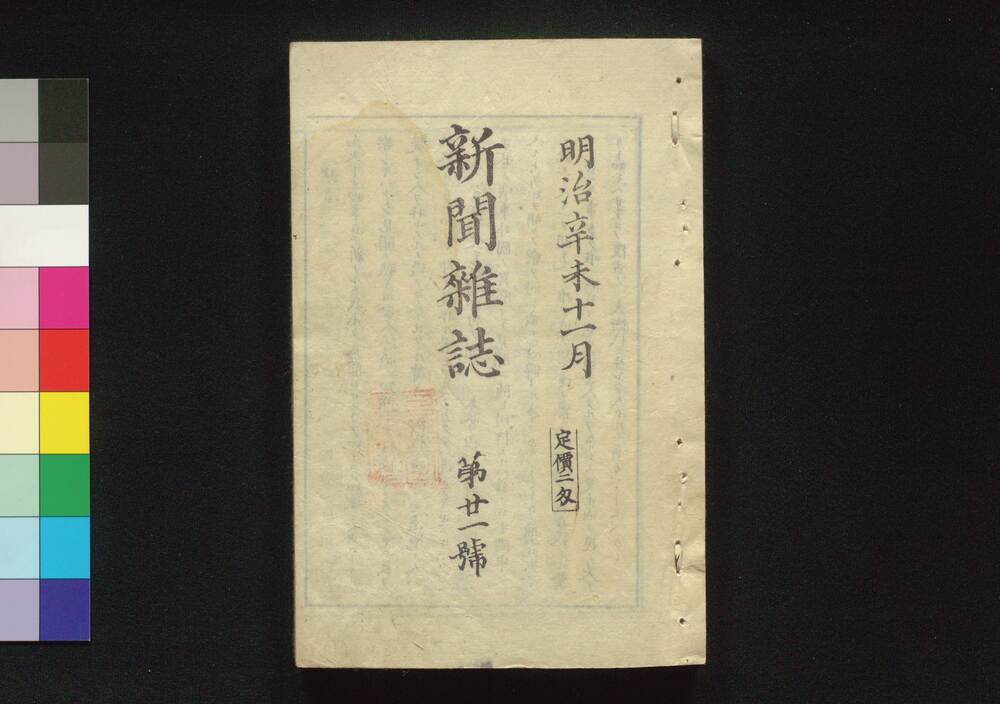 明治辛未十一月
定價二匁
新聞雜誌
第廿一號